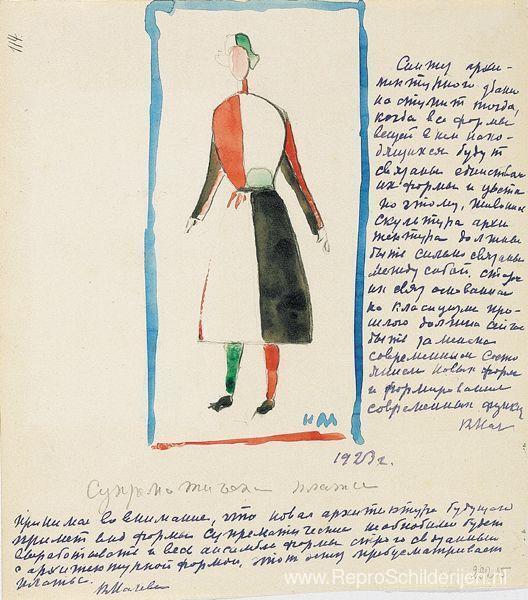 114.
Синтез архи-
тектурного здания
наступит тогда,
когда все формы
вещей в нем нахо-
дящихся будут
связаны единством
их формы и цвета
по этому, живопись
скульптура архи
тектура должны
быть сильно связаны
между собой, старая
их связь основанная
на классицизме про-
шлого должна
быть заменена
современным состо
янием новых форм
и формирования
современных
К Мал
КМ
1923 г.
Принимая во внимание, что новая архитектура будущего
примет вид формы супрематические необходимо будет
выработать и весь ансамбль формы строго связанный
с архитектурной формой, этот эскиз предусматривает
платье.
К Малев
www.ReproSchilderijen.nl